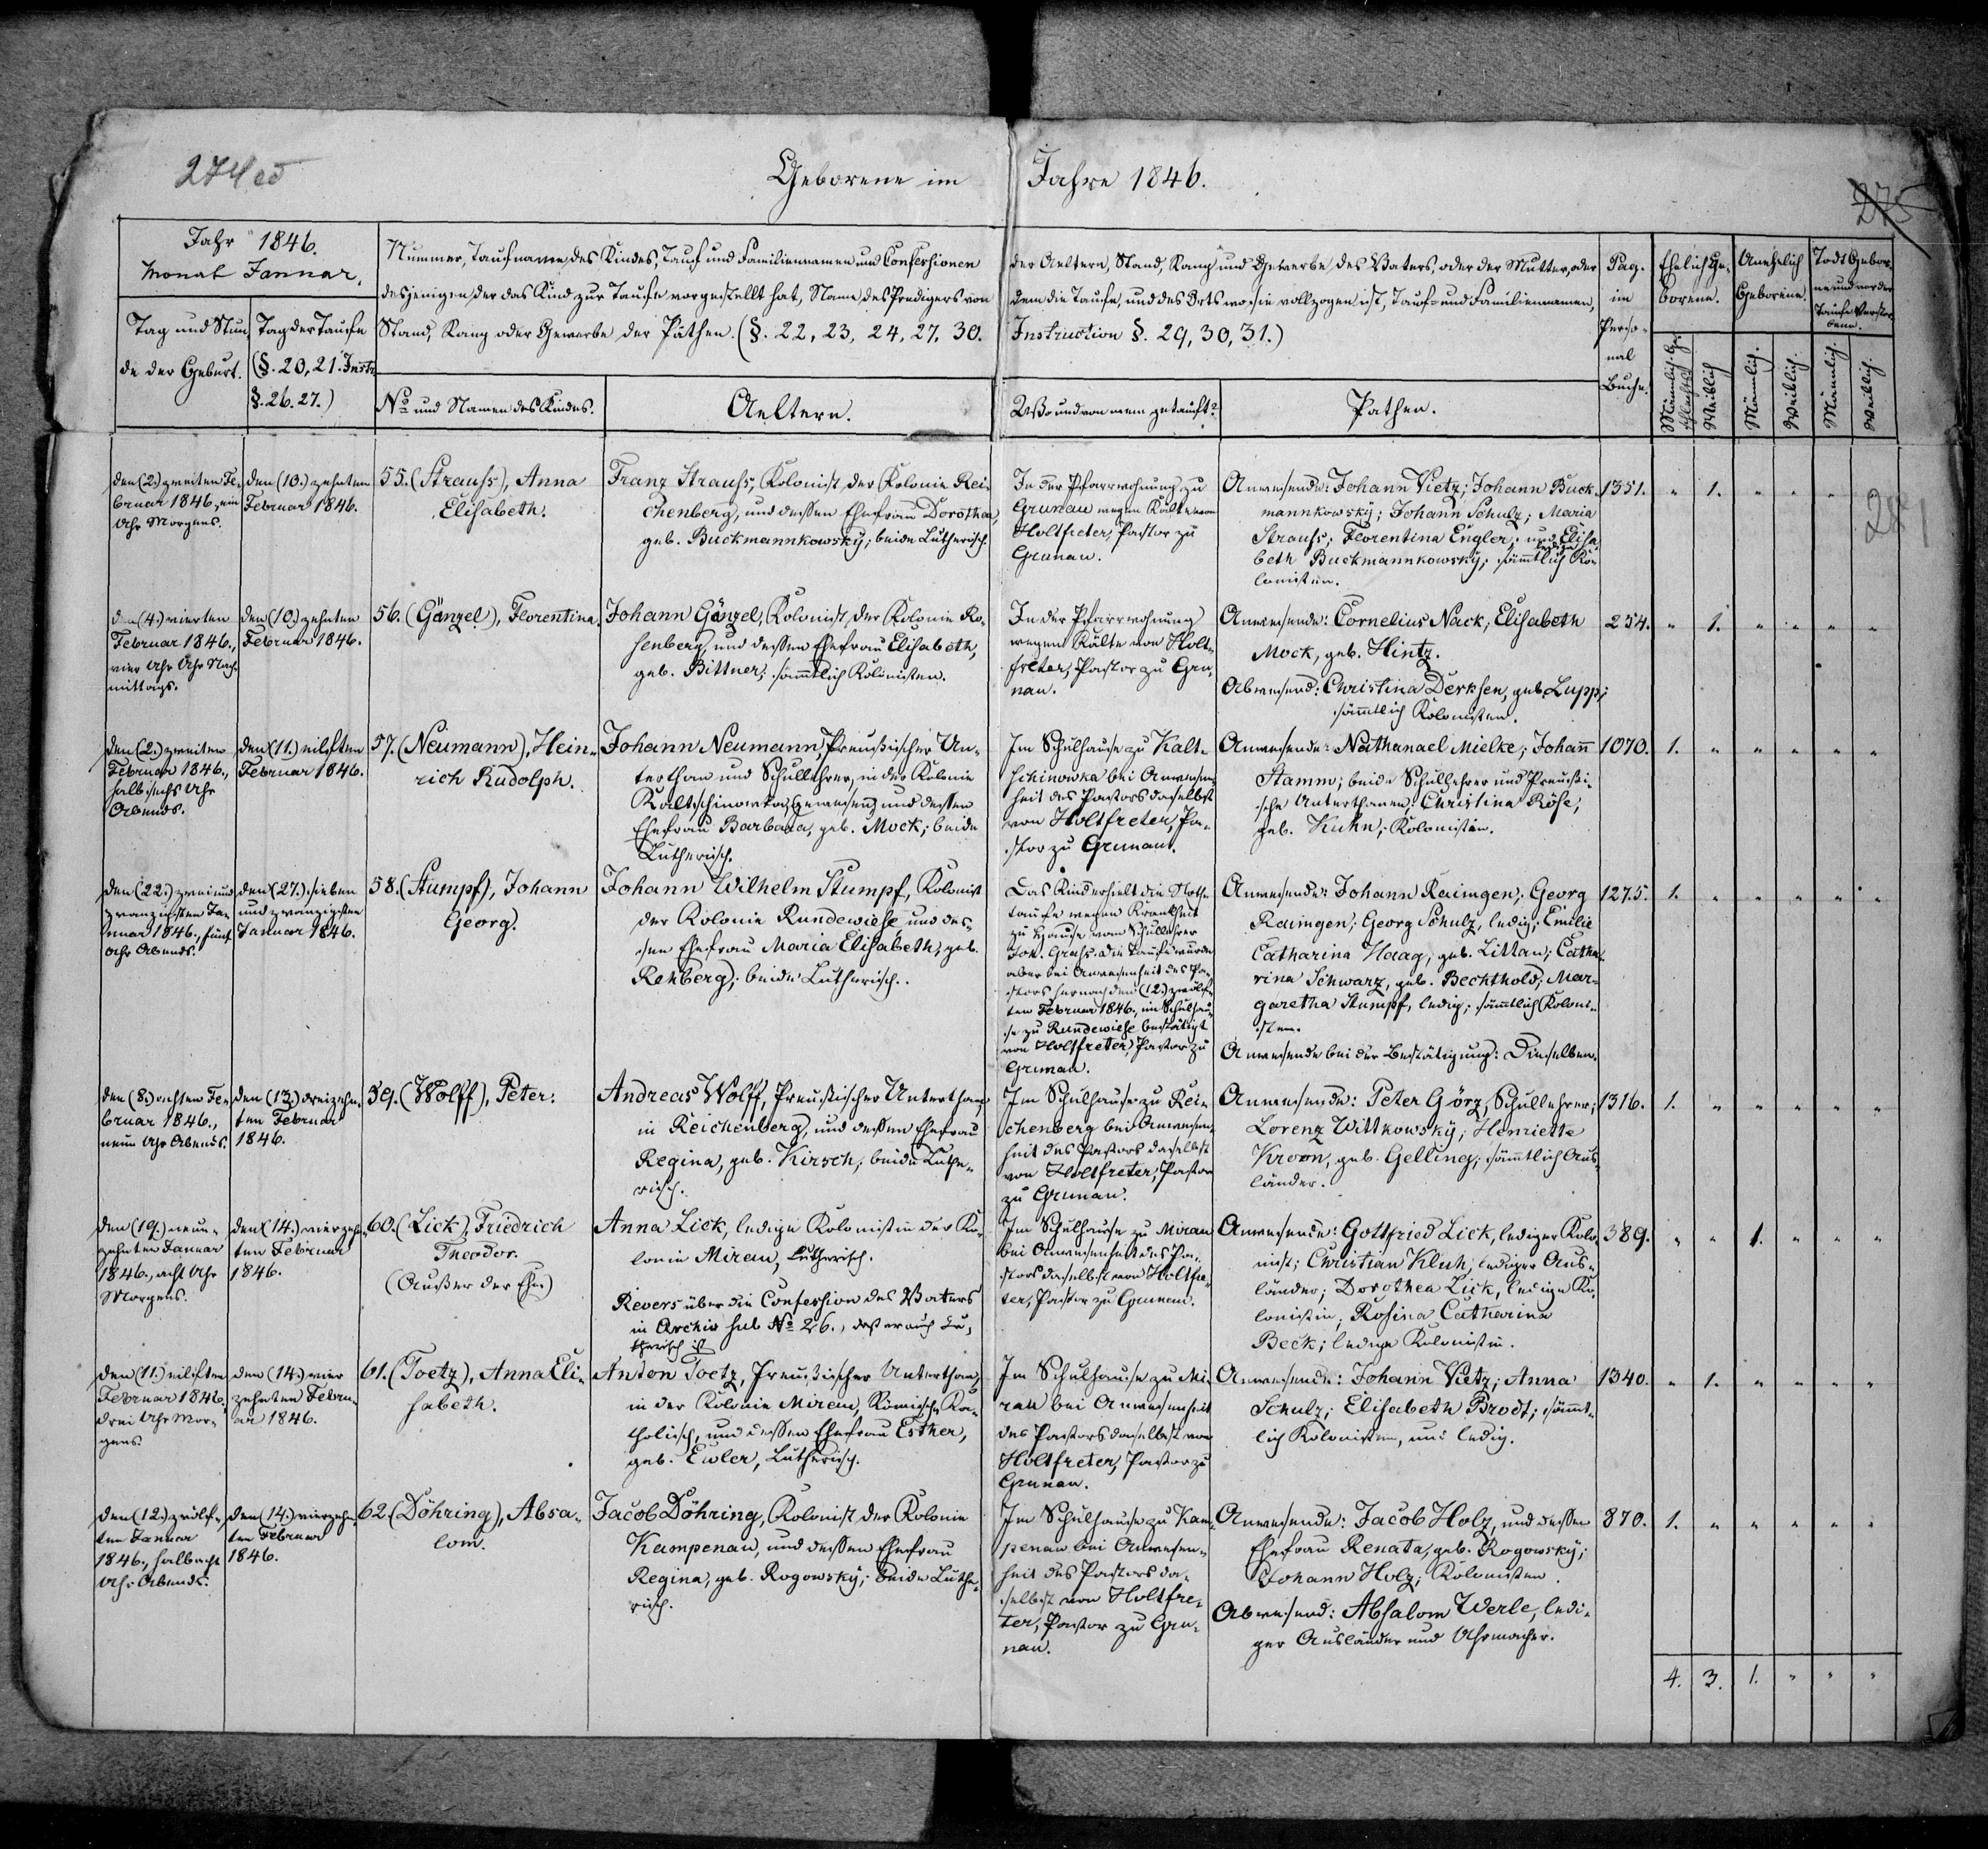 274
Geborene im Jahre 1846.
275
281
Jahr 1846.
Monat Januar.
Tag und Stun-
de der Geburt.
Tag der Taufe
(§. 20, 21. Instr.
§. 26. 27.)
Nummer, Taufname des Kindes, Tauf und Familiennamen und Confessionen
desjenigen der das Kind zur Taufe vorgestellt hat, Name des Predigers von
Stand, Rang oder Gewerbe der Pathen. (§. 22, 23, 24, 27, 30.
No und Namen des Kindes.
Aeltern.
der Aeltern, Stand, Rang und Gewerbe des Vaters, oder der Mutter, oder
dem die Taufe, und des Orts wo sie vollzogen ist, Tauf- und Familiennamen,
Instruction §. 29, 30, 31.)
Wo und von wem getauft?
Pathen.
Pag.
im
Perso-
nal
Buche.
Ehelich Ge-
borene.
Unehelich
Geborene.
Todt Gebor-
ne und vor der
Taufe Verstor-
bene.
Männlich. Ge-
schlechts
Weiblich
Männlich.
Weiblich.
Männlich.
Weiblich.
den (2.) zweiten Fe-
bruar 1846, ein
Uhr Morgens.
den (10.) zehnten
Februar 1846.
55. (Strauss), Anna
Elisabeth.
Franz Strauss, Kolonist der Kolonie Rei-
chenberg, und dessen Ehefrau Dorothea,
geb. Buckmannkowsky; beide Lutherisch.
In der Pfarrwohnung zu
Grunau wegen Kälte von
Holtfreter, Pastor zu
Grunau.
Anwesende: Johann Vietz; Johann Buck-
mannkowsky; Johann Schulz; Maria
Strauss; Florentina Engler; und Elisa-
beth Buckmannkowsky; sämmtlich ledige Ko-
lonisten.
1351. " 1. " " "
den (4.) vierten
Februar 1846.,
vier Uhr Uhr Nach-
mittags.
den (10.) zehnten
Februar 1846.
56. (Gänzel), Florentina.
Johann Gänzel, Kolonist der Kolonie Ro-
senberg, und dessen Ehefrau Elisabeth,
geb. Bittner; sämmtlich Kolonisten.
In der Pfarrwohnung
wegen Kälte von Holt-
freter, Pastor zu Gru-
nau.
Anwesende: Cornelius Nack; Elisabeth
Mock, geb. Hintz.
Abwesend: Christina Derksen, geb. Lupp;
sämmtlich Kolonisten.
254. " 1. " " " "
den (2.) zweiten
Februar 1846.,
halb sechs Uhr
Abends.
den (11.) eilften
Februar 1846.
57. (Neumann), Hein-
rich Rudolph.
Johann Neumann, Preussischer Un-
terthan und Schullehrer, in der Kolonie
Kaltschinowka, und dessen
Ehefrau Barbara, geb. Mock; beide
Lutherisch.
Im Schulhause zu Kalt-
schinowka bei Anwesen-
heit des Pastors daselbst
von Holtfreter, Pa-
stor zu Grunau.
Anwesende: Nathanael Mielke; Johann
Stamm; beide Schullehrer und Preussi-
sche Unterthanen; Christina Röse,
geb. Kuhn; Kolonistin.
1070. 1. " " " " "
den (22.) zweiund-
zwanzigsten Ja-
nuar 1846., fünf
Uhr Abends.
den (27.) sieben
und zwanzigsten
Januar 1846.
58. (Stumpf), Johann
Georg.
Johann Wilhelm Stumpf, Kolonist
der Kolonie Rundewiese und des-
sen Ehefrau Maria Elisabeth, geb.
Rehberg; beide Lutherisch.
Das Kind erhielt die Noth-
taufe wegen Krankheit
zu Hause vom Schullehrer
Joh. Die Taufe wurde
aber bei Anwesenheit des Pa-
stors hernach den (12.) zwölf-
ten Februar 1846., im Schulhau-
se zu Rundewiese bestätigt
von Holtfreter, Pastor zu
Grunau.
Anwesende: Johann Reimgen; Georg
Reimgen; Georg Schulz, ledig; Emilie
Catharina Haag, geb. Littau; Catha-
rina Schwarz, geb. Bechthold; Mar-
garetha Stumpf, ledig; sämmtlich Koloni-
sten.
Anwesende bei der Bestätigung: Dieselben.
1275. 1. " " " " "
den (8.) achten Fe-
bruar 1846.,
neun Uhr Abends.
den (13.) dreizehn-
ten Februar
1846.
59. (Wolff), Peter.
Andreas Wolff, Preussischer Unterthan
in Reichenberg, und dessen Ehefrau
Regina, geb. Kirsch; beide Luthe-
risch.
Im Schulhause zu Rei-
chenberg bei Anwesen-
heit des Pastors daselbst
von Holtfreter, Pastor
zu Grunau.
Anwesende: Peter Görz, Schullehrer;
Lorenz Wittkowsky; Henriette
Kroon, geb. Gelling; sämmtlich Aus-
länder.
1316. 1. " " " " "
den (19.) neun-
zehnten Januar
1846., acht Uhr
Morgens.
den (14.) vierzehn-
ten Februar
1846.
60. (Lick), Friedrich
Theodor.
(Ausser der Ehe)
Anna Lick, ledige Kolonistin der Ko-
lonie Mirau, Lutherisch.
Revers über die Confession des Vaters
in Archiv sub No 26., dass er auch Lu-
therisch ist
Im Schulhause zu Mirau
bei Anwesenheit des Pa-
stors daselbst von Holtfre-
ter, Pastor zu Grunau.
Anwesende: Gottfried Lick, lediger Kolo-
nist; Christian Kluh, lediger Aus-
länder; Dorothea Lick, ledige Ko-
lonistin; Rosina Catharina
Beck; ledige Kolonistin.
389. " " 1. " " "
den (11.) eilften
Februar 1846.
drei Uhr Mor-
gens.
den (14.) vier
zehnten Febru-
ar 1846.
61. (Toetz), Anna Eli-
sabeth.
Anton Toetz, Preussischer Unterthan,
in der Kolonie Mirau, Römisch-Ka-
tholisch, und dessen Ehefrau Esther,
geb. Ewler, Lutherisch.
Im Schulhause zu Mi-
rau bei Anwesenheit
des Pastors daselbst von
Holtfreter, Pastor zu
Grunau.
Anwesende: Johann Vietz; Anna
Schulz; Elisabeth Brodt; sämmt-
lich Kolonisten, und ledig.
1340. " 1. " " " "
den (12.) zwölf-
ten Januar
1846., halb acht
Uhr Abends.
den (14.) vierzehn-
ten Februar
1846.
62. (Döhring), Absa-
lom.
Jacob Döhring, Kolonist der Kolonie
Kampenau, und dessen Ehefrau
Regina, geb. Rogowsky; beide Luthe-
risch.
Im Schulhause zu Kam-
penau bei Anwesen-
heit des Pastors da-
selbst von Holtfre-
ter, Pastor zu Gru-
nau.
Anwesende: Jacob Holz, und dessen
Ehefrau Renata, geb. Rogowsky;
Johann Holz; Kolonisten.
Abwesend: Absalom Werle, ledi-
ger Ausländer und Uhrmacher.
870. 1. " " " " "
4. 3. 1. " " "